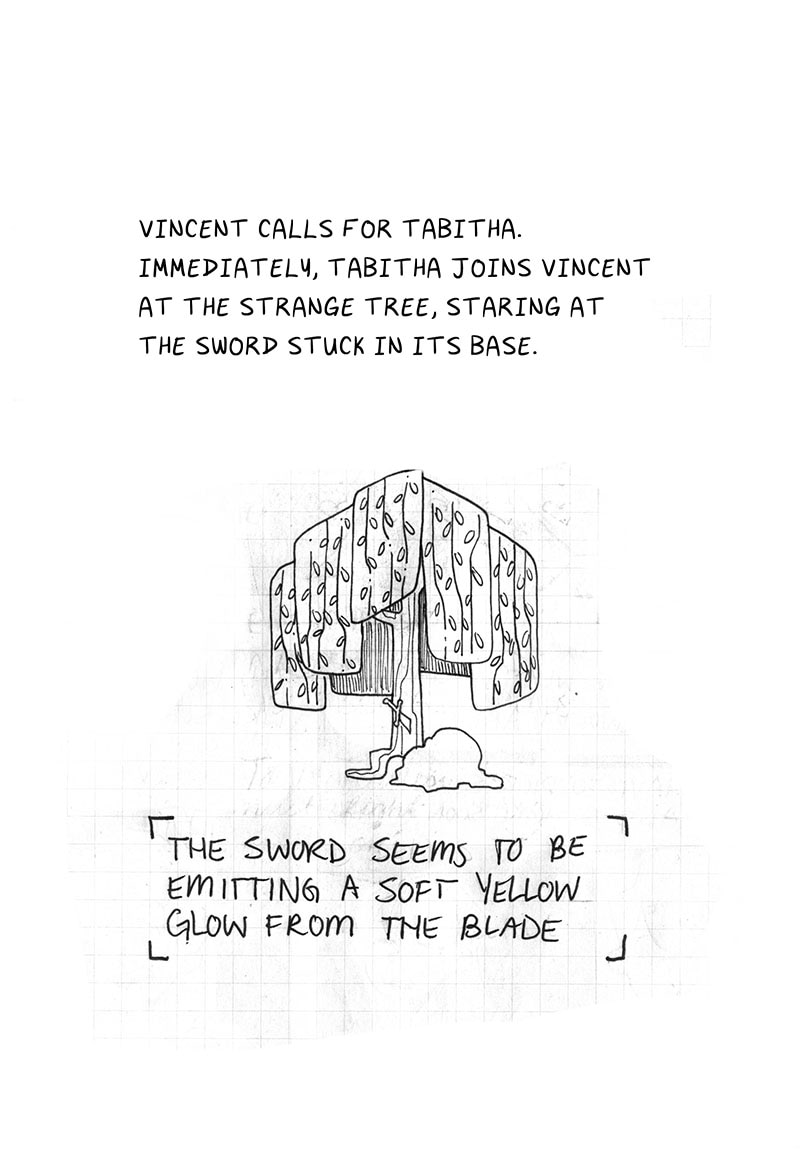 VINCENT CALLS FOR TABITHA.
IMMEDIATELY, TABITHA JOINS VINCENT
AT THE STRANGE TREE, STARING AT
THE SWORD STUCK IN ITS BASE.
THE SWORD SEEMS TO BE
EMITTING A SOFT YELLOW
GLOW FROM THE BLADE